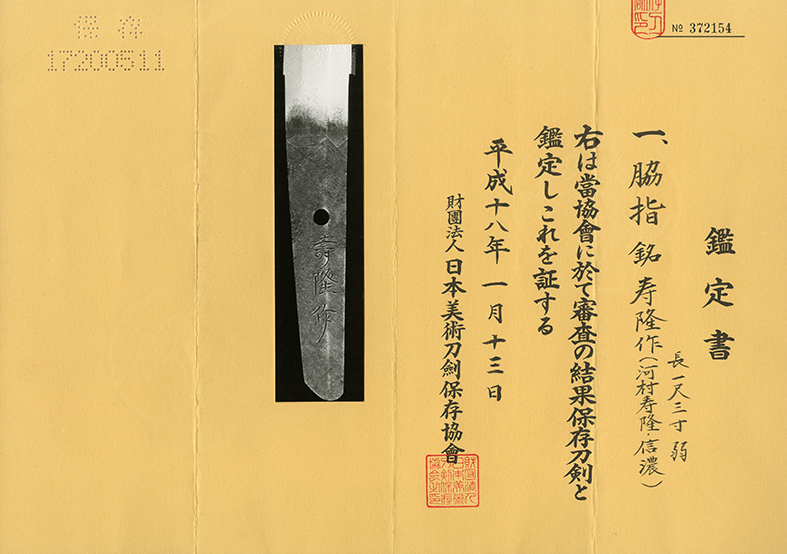 № 372154
鑑定書
一、脇指 銘 寿隆作(河村寿隆・信濃)
長一尺三寸弱
右は當協會に於て審査の結果保存刀剣と
鑑定しこれを証する
平成十八年一月十三日
財團法人 日本美術刀劍保存協會
壽隆作
保存
17200511